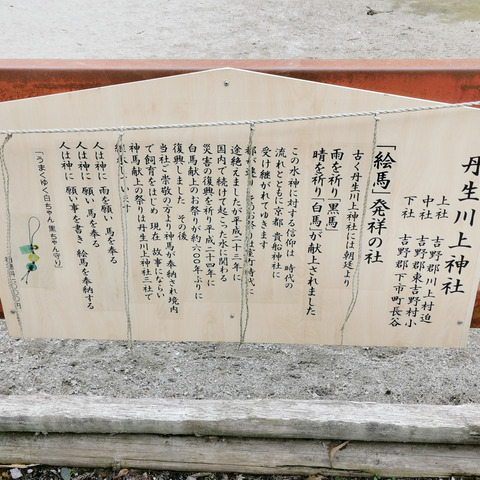 丹生川上神社
上社 吉野郡川上村迫
中社 吉野郡東吉野村小
下社 吉野郡下市町長谷
「絵馬」発祥の社
古く丹生川上神社には朝廷より
雨を祈り「黒馬」
晴を祈り「白馬」が献上されました
この水神に対する信仰は 時代の
流れとともに京都 貴船神社に
受け継がれてゆきます
途絶えましたが平成二十三年に
国内で続けて起こった水に関わる
災害の復興を祈り平成二十四年に
白馬献上のお祭りが約六〇〇年ぶりに
復興しました その後
当社ご崇敬の方より神馬が奉納され境内
で飼育をはじめ 現在 故事にならい
神馬献上の祭りは丹生川上神社三社で
人は神に 雨を願い 馬を奉る
人は神に 願い 馬を奉る
人は神に 願い事を書き 絵馬を奉納する
「うまくゆく白ちゃん 黒ちゃん守り」